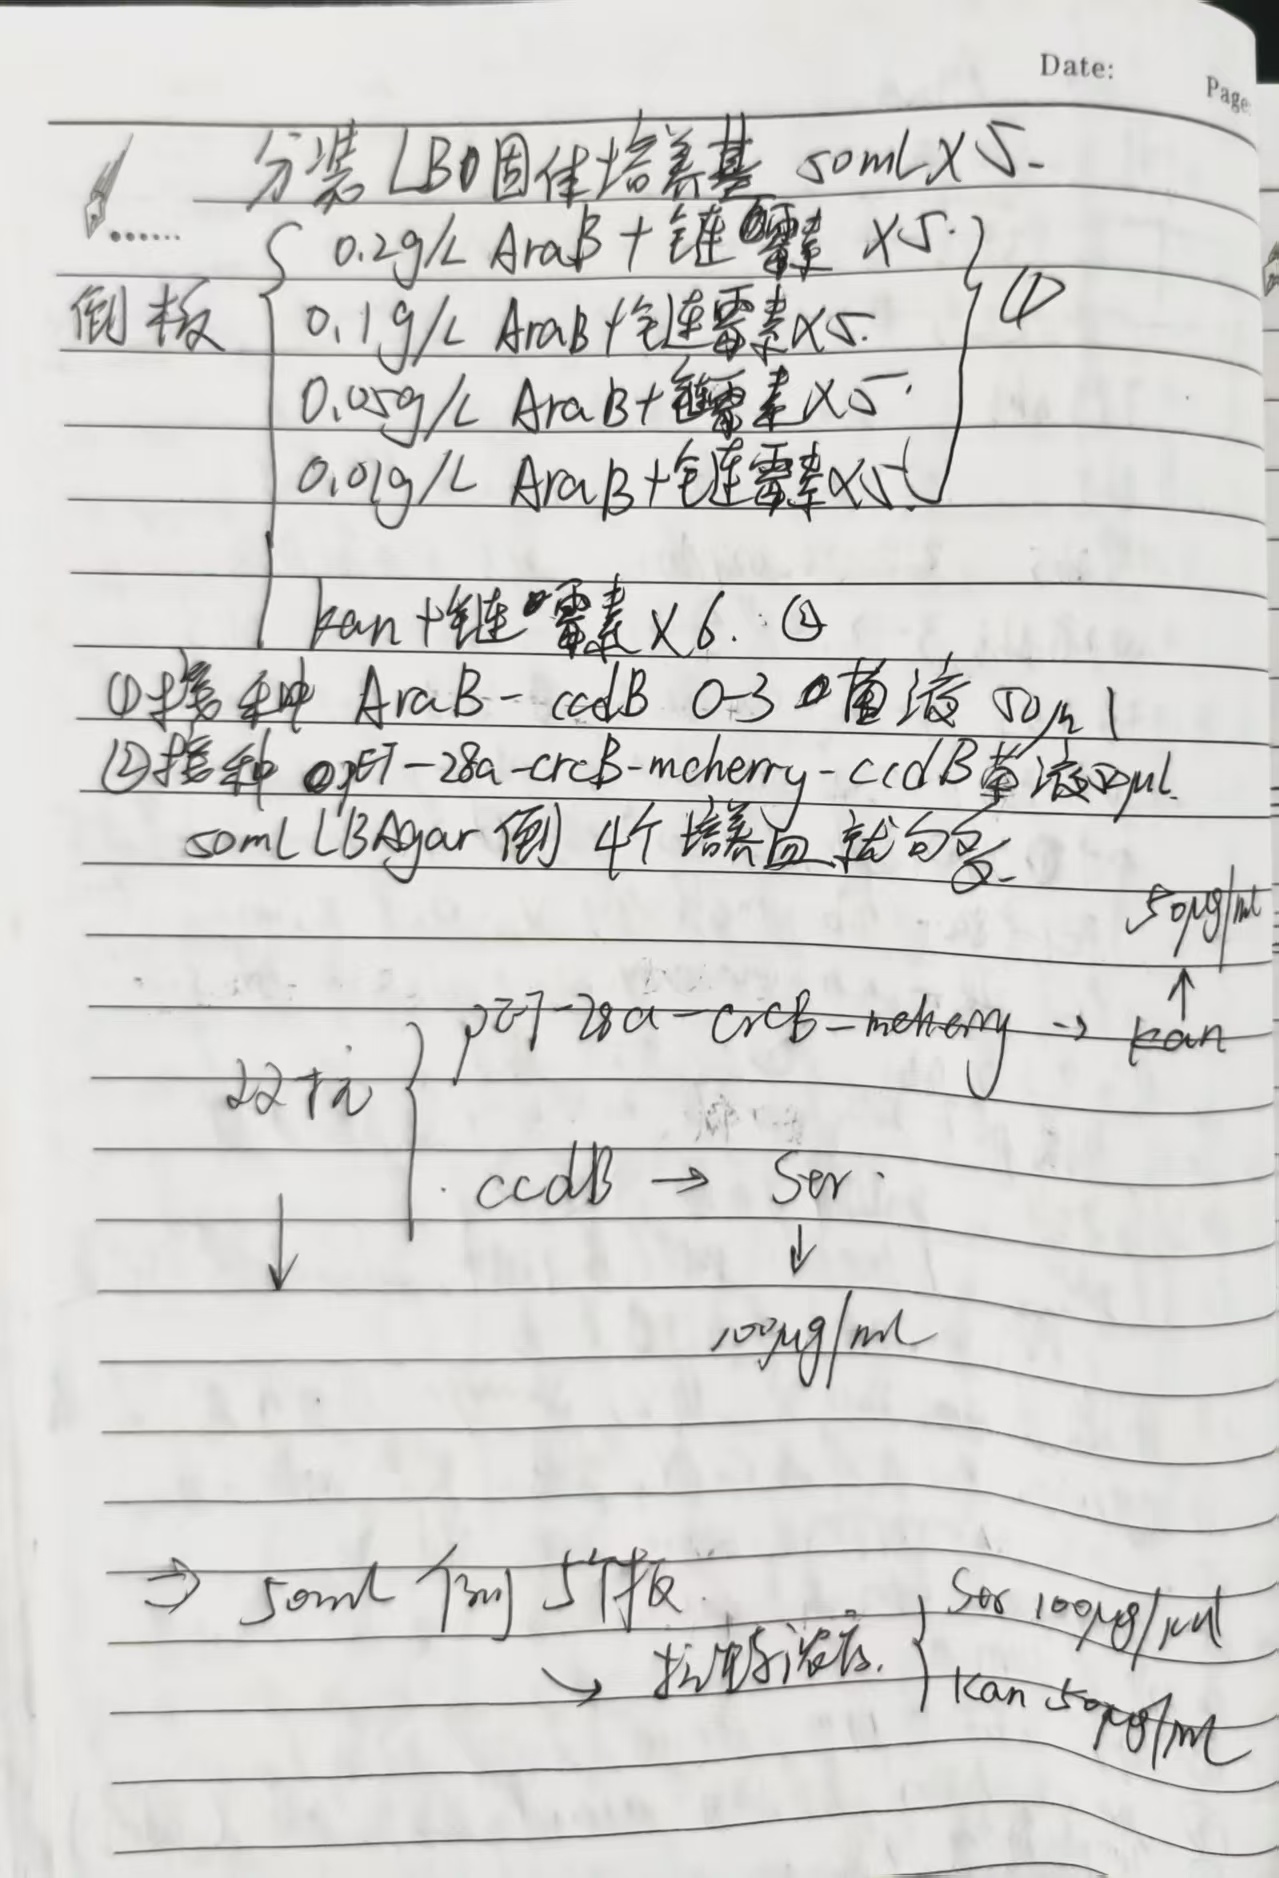 Date:
Page
分装 LB 固体培养基 50mL×5.
0.2g/L AraB + 链霉素 ×5.
倒板
0.1g/L AraB + 链霉素 ×5. ①
0.05g/L AraB + 链霉素 ×5.
0.01g/L AraB + 链霉素 ×5.
kan + 链霉素 ×6. ②
①接种 AraB - ccdB 0-3 菌液 50μl
②接种 pET-28a-crcB-mcherry-ccdB菌液 μL.
50mL LBAgar 倒 4个培养皿就够多.
50μg/ml
↑
pET-28a-crcB-mcherry → kan
双抗
ccdB → Ser.
↓ ↓
100μg/ml
⇒ 50ml 倒 5个板.
Ser 100μg/ml
↘ 抗生素浓度.
Kan 50μg/ml